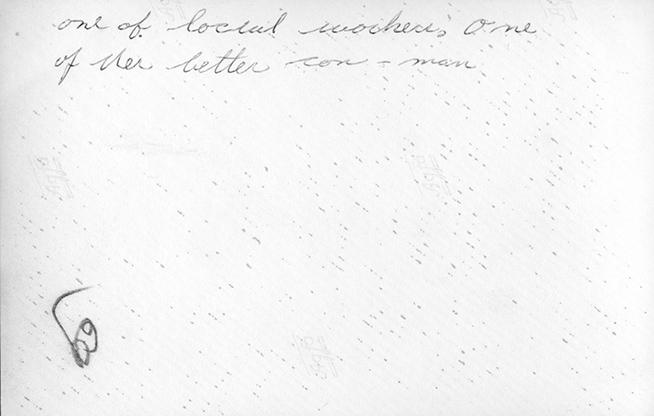 one of. locial workers, One
of the better con - man
69